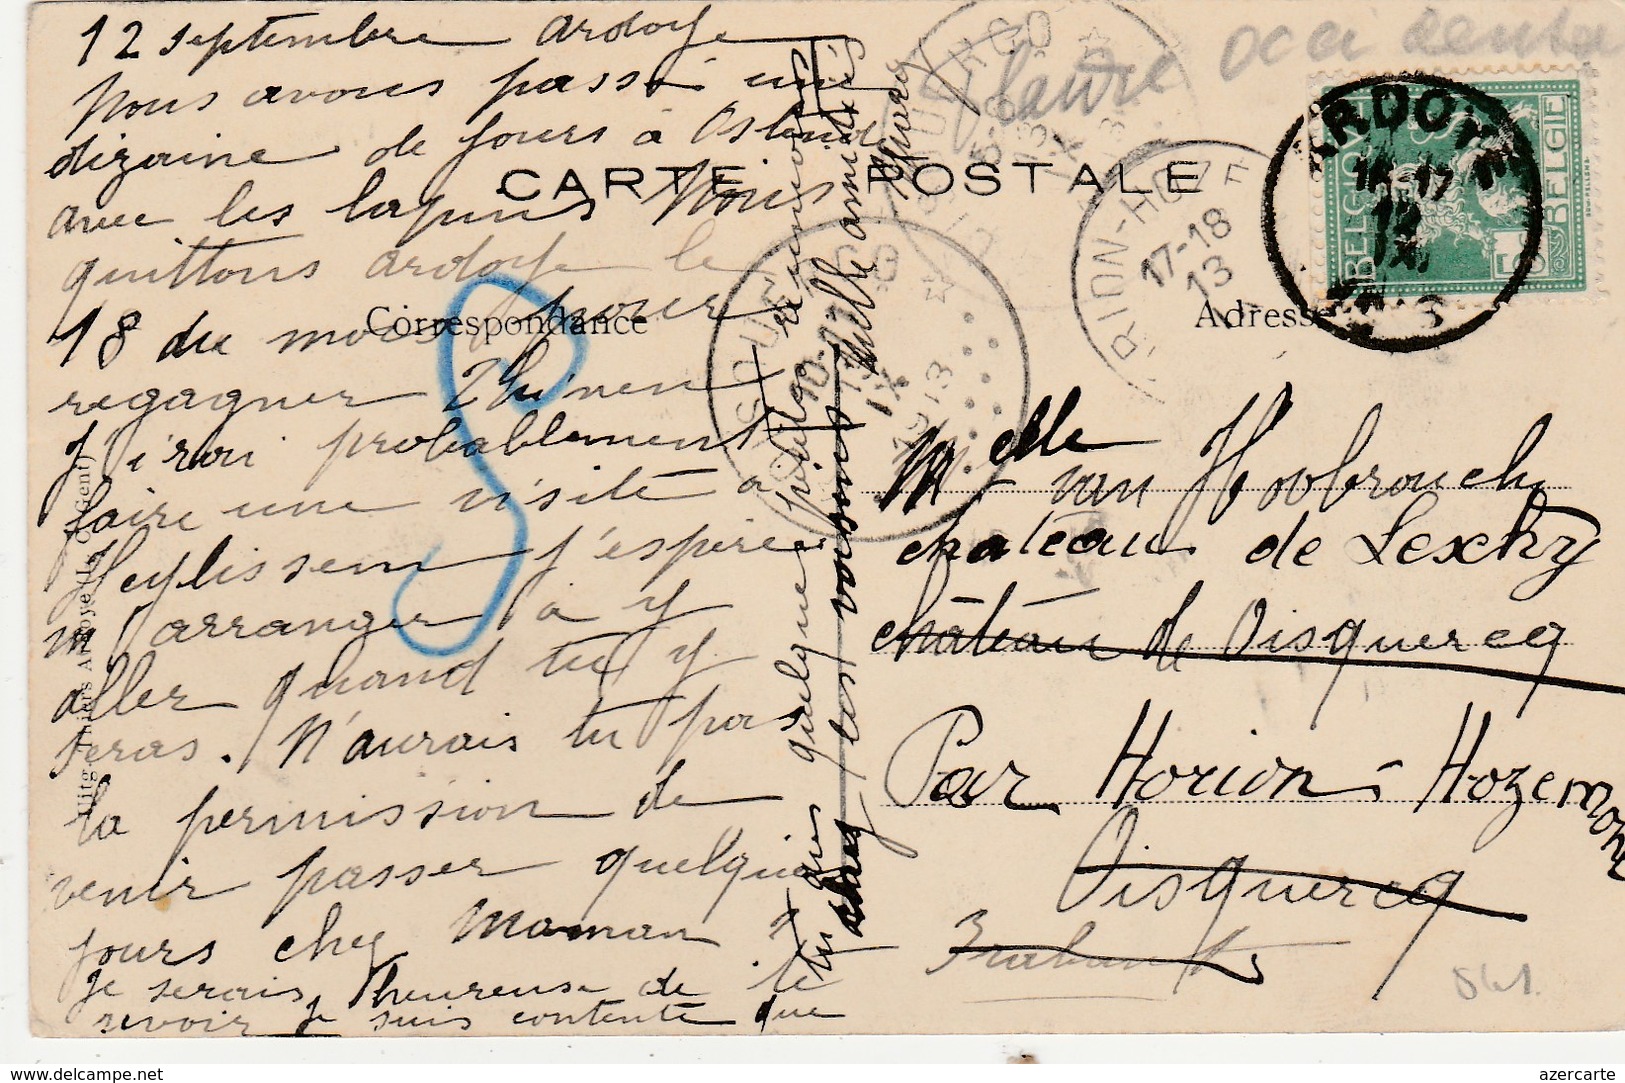 12 septembre Ardoye
Nous avons passé une
dizaine de jours à Ostende
avec les lapins Nous
quittons Ardoye le
18 du mois pour
regagner Thinen
J'irai probablement
faire une visite à
Heylissem j'espère
m'arranger à y
aller quand tu y
seras. N'aurais tu pas
la permission de
venir passer quelques
jours chez Maman ?
Je serais heureuse de te
revoir je suis contente que
tu as quelque
chez tes voisins Mille amitiés
CARTE POSTALE
Correspondance
Adresse
Flandre occidentale
BELGIQUE
BELGIË
5
ARDOYE
16-17
12
IX
1913
HORION-HOZE
17-18
13
10-
13
IX
1913
Melle van Hoobrouck
château de Lexhy
château de Oisquercq
Par Horion-Hozemont
Oisquercq
Brabant